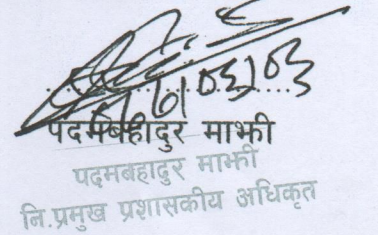 पदमबहादुर माझी
पदमबहादुर माझी
नि.प्रमुख प्रशासकीय अधिकृत